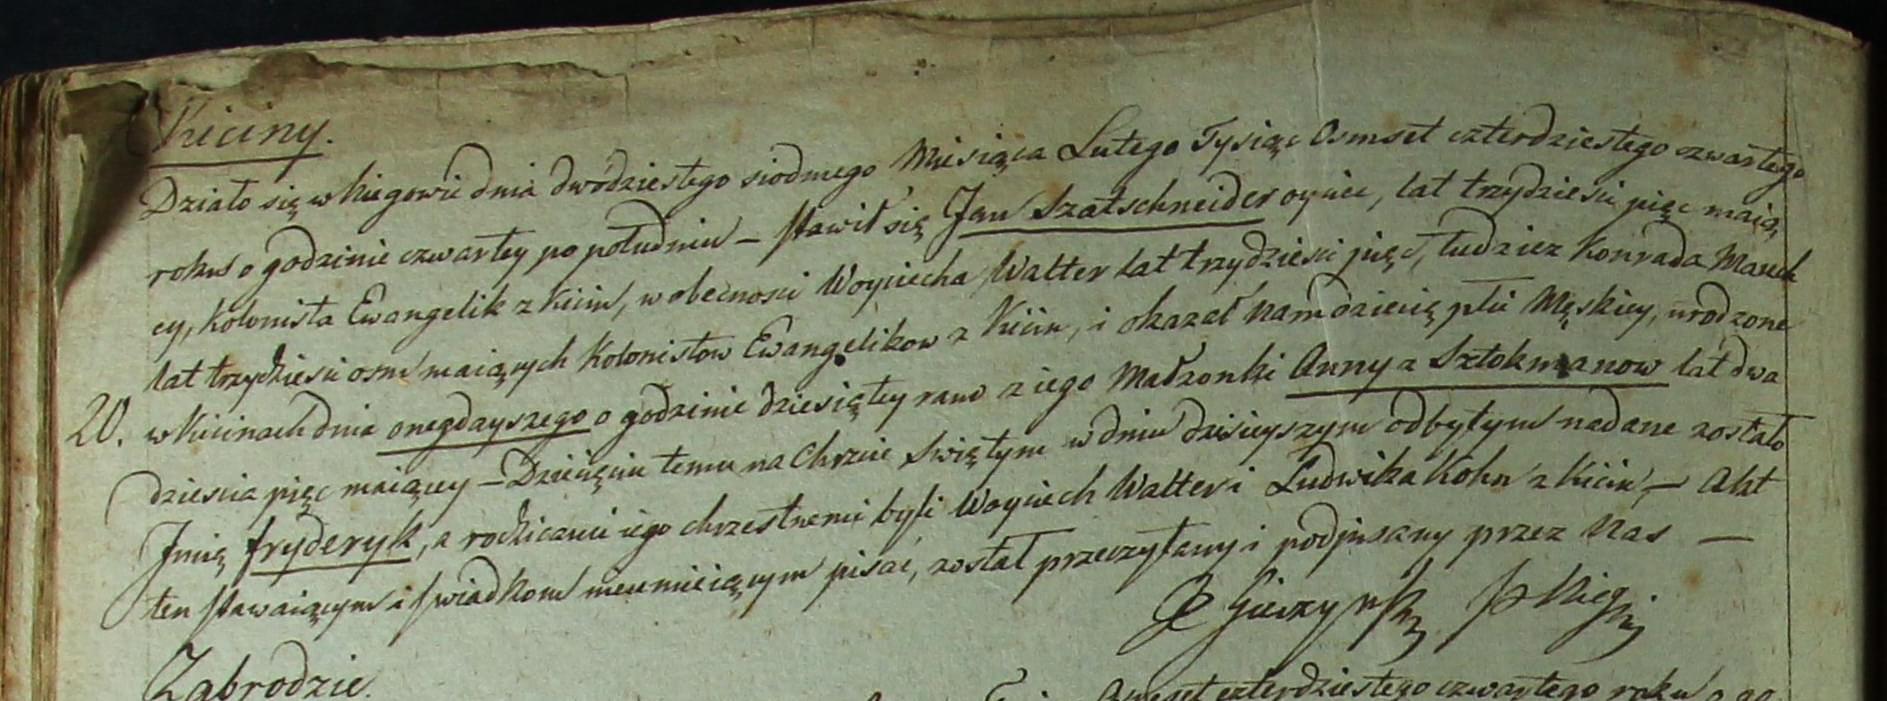 Kiciny.
Działo się w Kiegowie dnia dwódziestego siodmego Miesiąca Lutego Tysiąc Osmset czterdziestego czwartego
roku o godzinie czwartey po południu – stawił się Jan Szatschneider oyciec, lat trzydziesci pięc maią
cy, Kolonista Ewangelik z Kicin, w obecnosci Woyciecha Walter lat trzydziesci pięc, tudziez Konrada Mauch
lat trzydziesci osm maiących Kolonistow Ewangelikow z Kicin, i okazał nam dziecię płci Męskiey, urodzone
20. w Kicinach dnia onegdayszego o godzinie dziesiątey rano z iego Małzonki Anny z Sztokmanow lat dwa
dziescia pięc maiącey – Dziecięciu temu na Chrzcie Swiętym w dniu dzisieyszym odbytym nadane zostało
Jmię fryderyk, a rodzicami iego chrzestnemi byli Woyciech Walter i Ludwika Kohn z Kicin, – Akt
ten stawaiącym i swiadkom nieumieiącym pisać, został przeczytany i podpisany przez Nas –
Zabrodzie.
Osmset czterdziestego czwartego roku o go